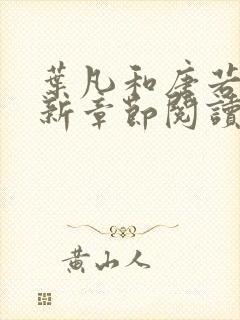 葉凡和唐若
新章節閱讀
黃山人